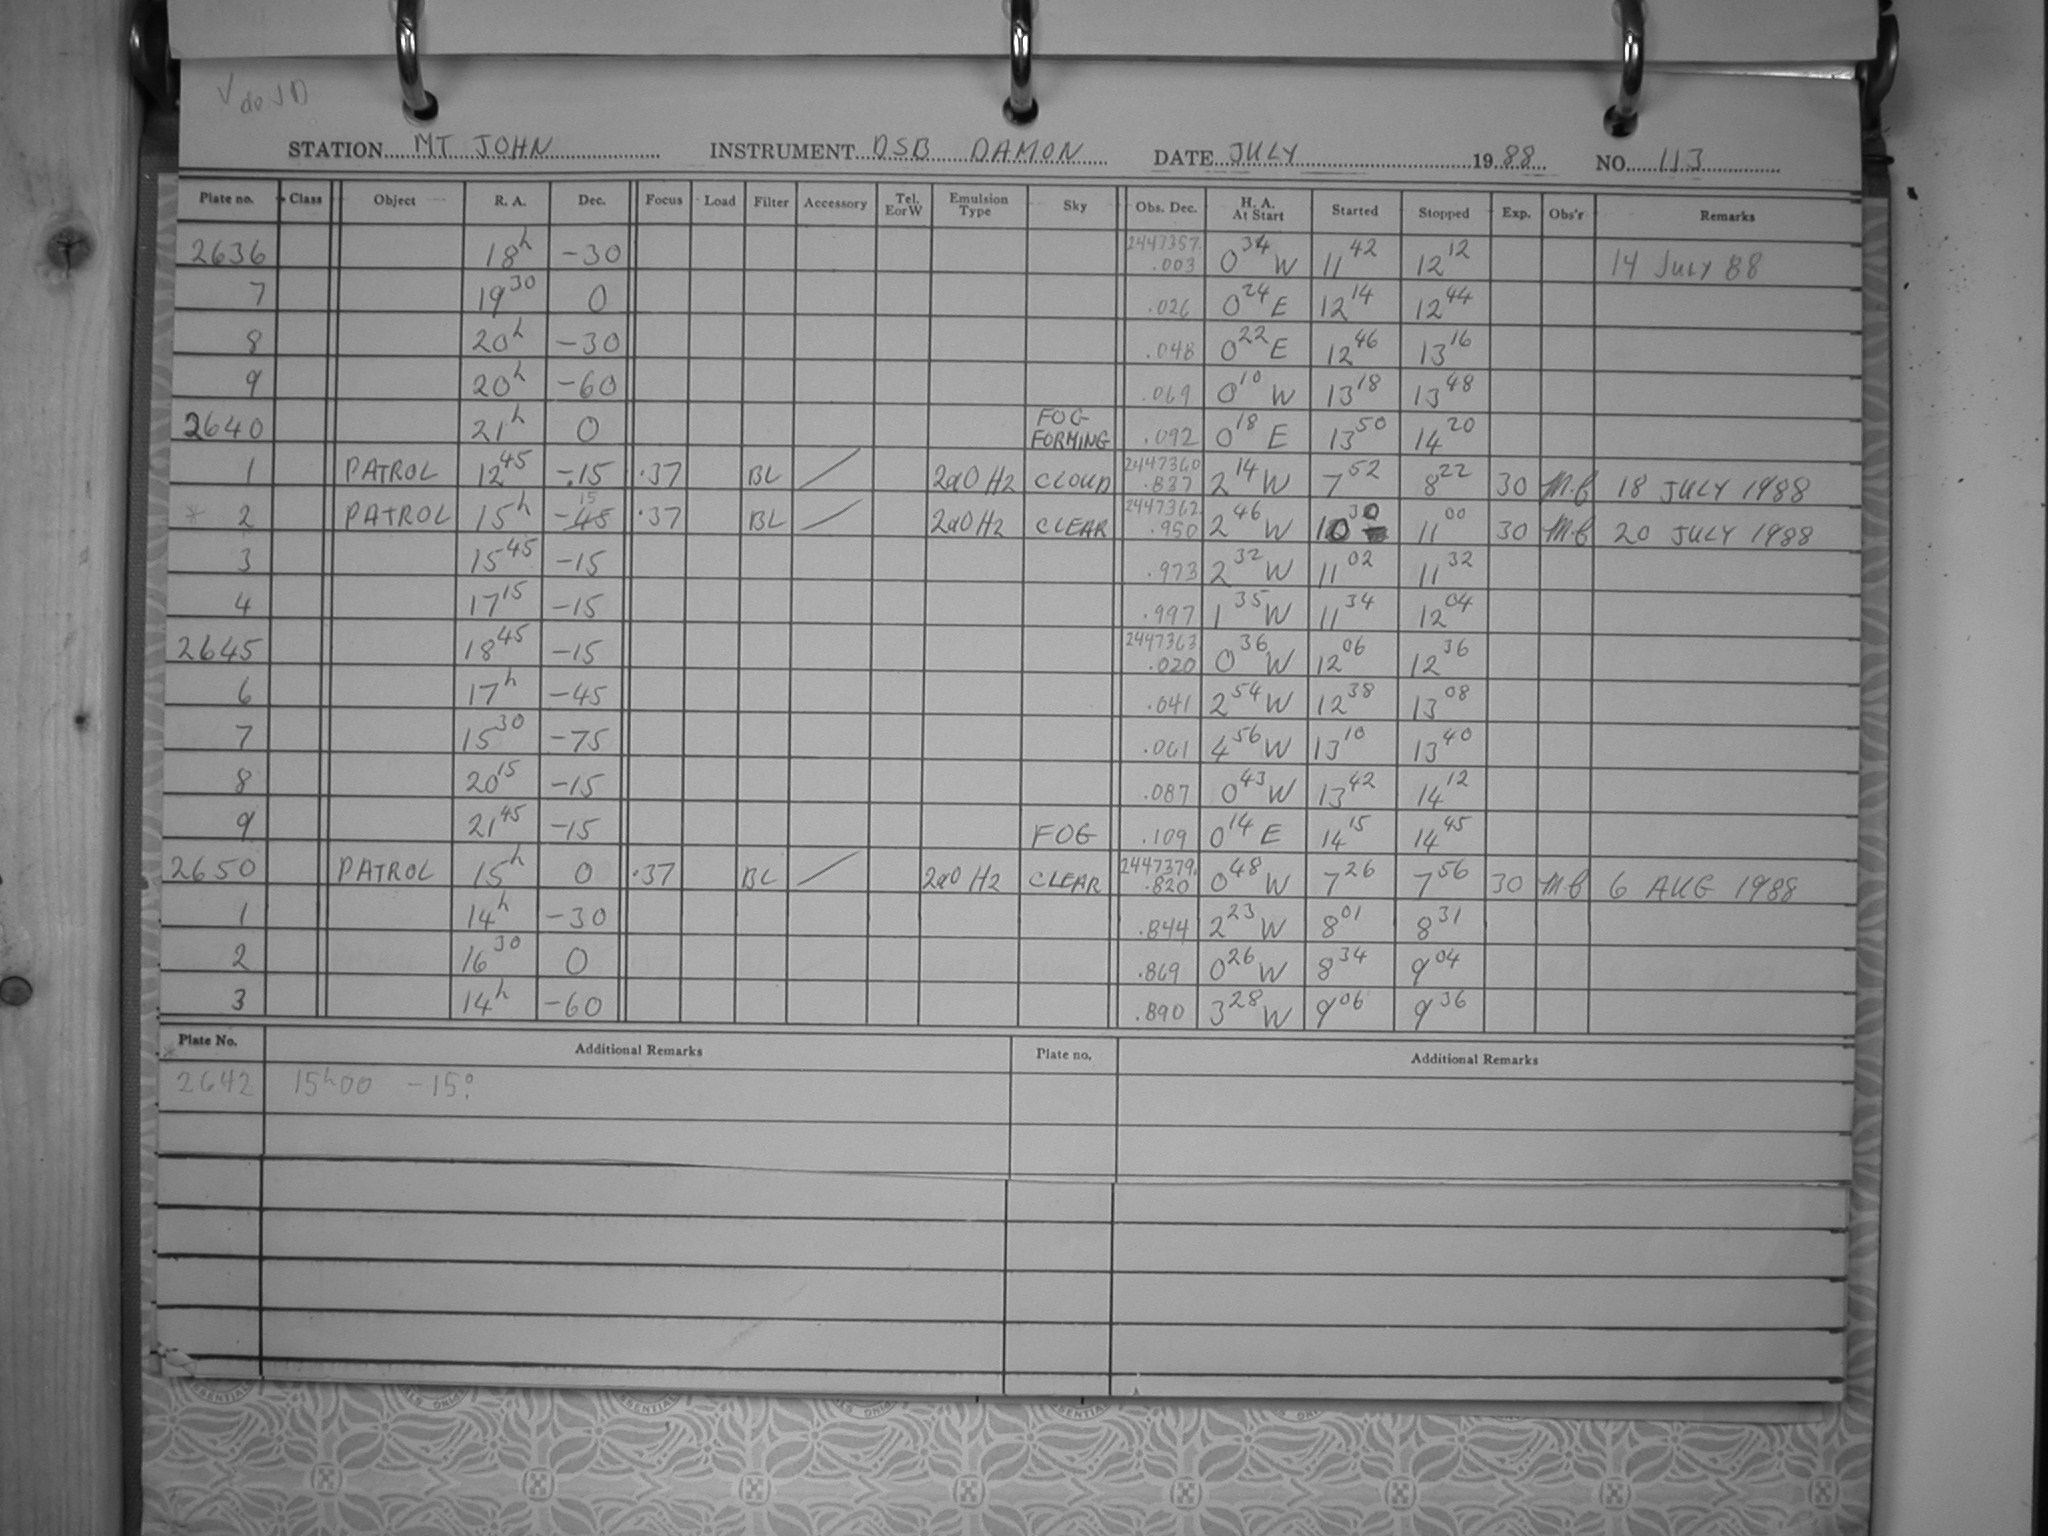 √ do JD
STATION MT JOHN INSTRUMENT DSB DAMON DATE JULY 1988 NO. 113
Plate no. Class Object R. A. Dec. Focus Load Filter Accessory Tel. E or W Emulsion Type Sky Obs. Dec. H. A. At Start Started Stopped Exp. Obs'r Remarks
2636 18h -30 2447357.003 0 34 W 11 42 12 12 14 July 88
7 19 30 0 .026 0 24 E 12 14 12 44
8 20h -30 .048 0 22 E 12 46 13 16
9 20h -60 .069 0 10 W 13 18 13 48
2640 21h 0 FOG FORMING .092 0 18 E 13 50 14 20
1 PATROL 12 45 -15 .37 BL / 2aO H2 CLOUD 2447360.837 2 14 W 7 52 8 22 30 M.C 18 JULY 1988
* 2 PATROL 15h -45 15 .37 BL / 2aO H2 CLEAR 2447362.950 2 46 W 10 30 11 00 30 M.C 20 JULY 1988
3 15 45 -15 .973 2 32 W 11 02 11 32
4 17 15 -15 .997 1 35 W 11 34 12 04
2645 18 45 -15 2447363.020 0 36 W 12 06 12 36
6 17h -45 .041 2 54 W 12 38 13 08
7 15 30 -75 .061 4 56 W 13 10 13 40
8 20 15 -15 .087 0 43 W 13 42 14 12
9 21 45 -15 FOG .109 0 14 E 14 15 14 45
2650 PATROL 15h 0 .37 BL / 2aO H2 CLEAR 2447379.820 0 48 W 7 26 7 56 30 M.C 6 AUG 1988
1 14h -30 .844 2 23 W 8 01 8 31
2 16 30 0 .869 0 26 W 8 34 9 04
3 14h -60 .890 3 28 W 9 06 9 36
Plate No. Additional Remarks Plate no. Additional Remarks
* 2642 15h00 -15°.